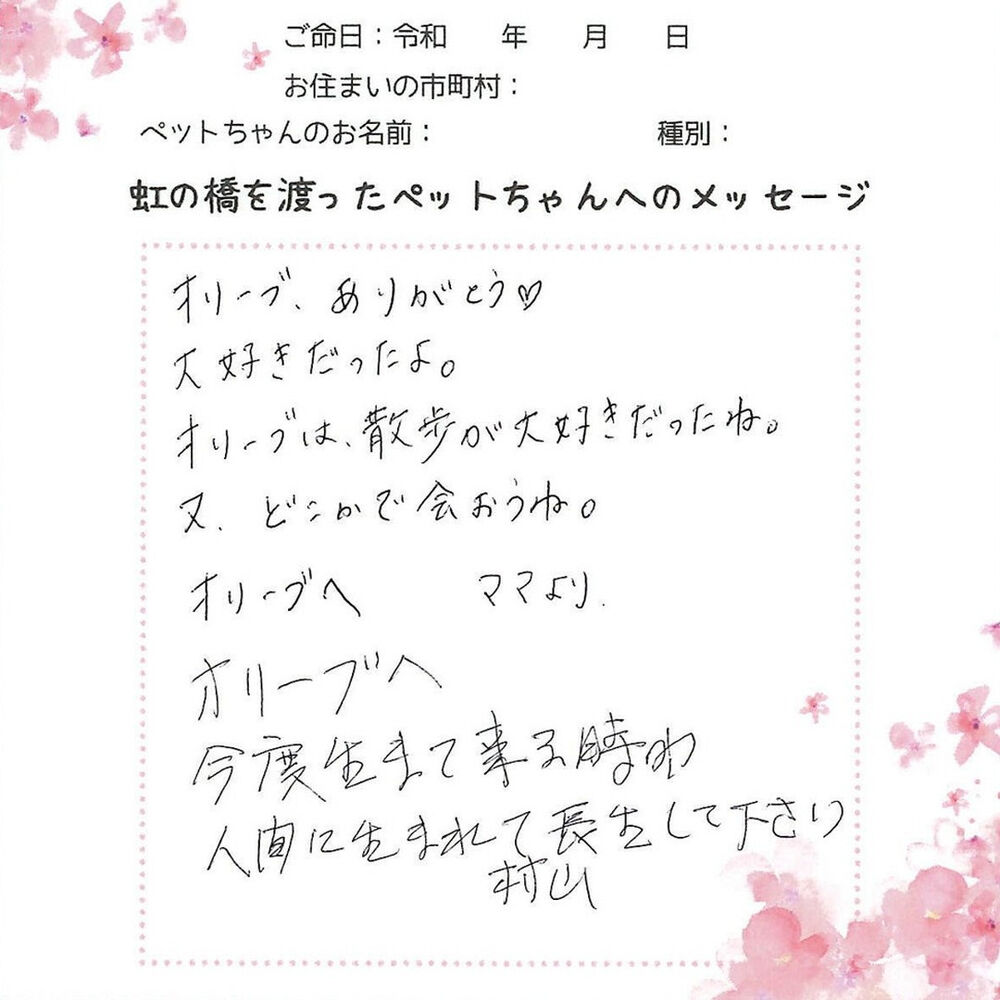 ご命日：令和　年　月　日
お住まいの市町村：
ペットちゃんのお名前：　種別：
虹の橋を渡ったペットちゃんへのメッセージ
オリーブ、ありがとう♡
大好きだったよ。
オリーブは、散歩が大好きだったね。
又、どこかで会おうね。
オリーブへ　ママより.
オリーブへ
今度生まて来る時わ
人間に生まれて長生して下さい
村山